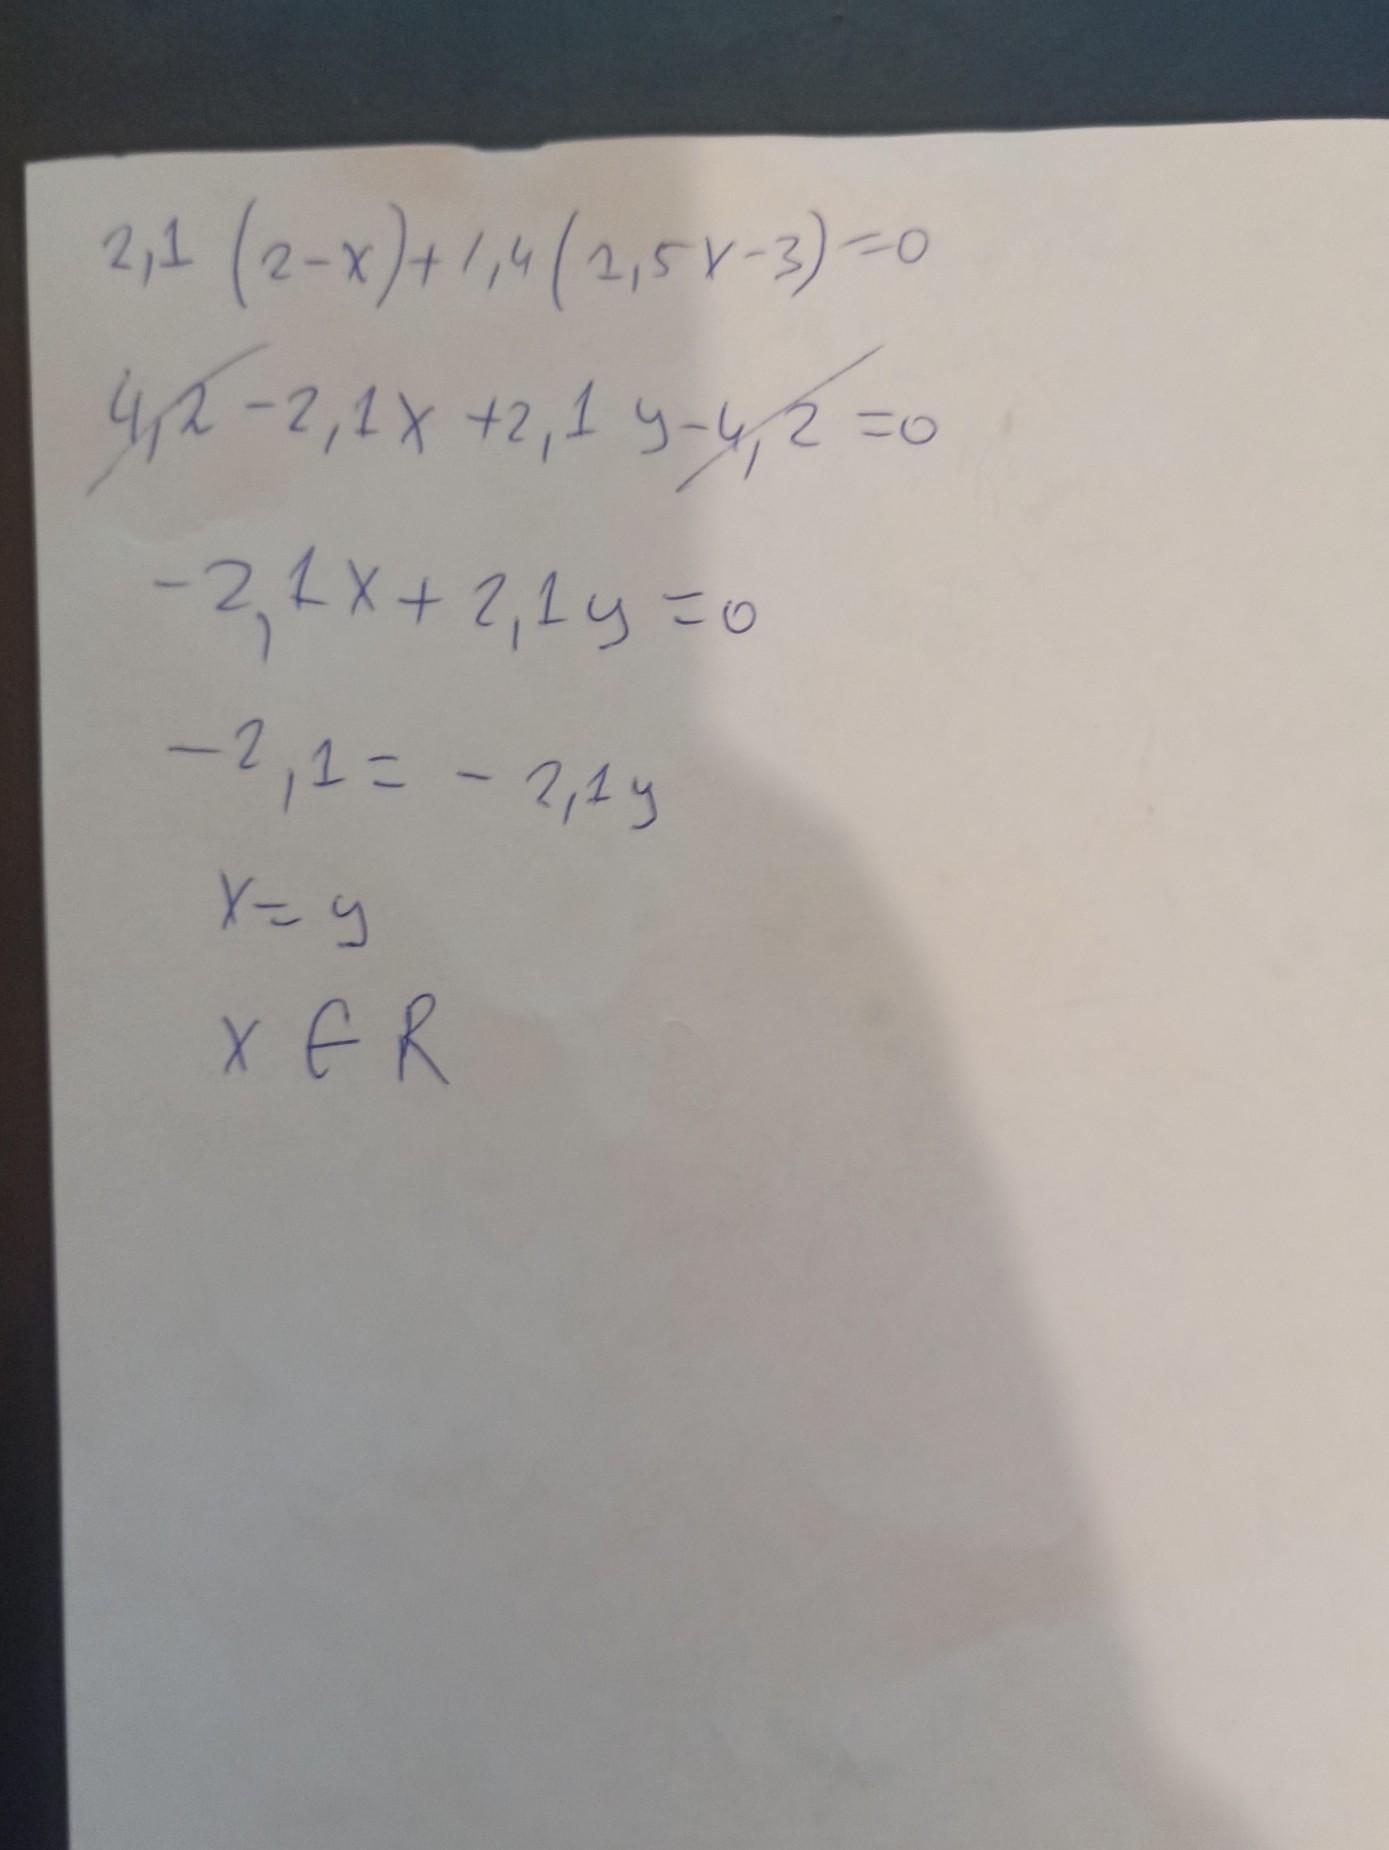 2,1 (2-x)+1,4(1,5y-3)=0
4,2-2,1x+2,1y-4,2=0
-2,1x+2,1y=0
-2,1=-2,1y
x=y
x ∈ R